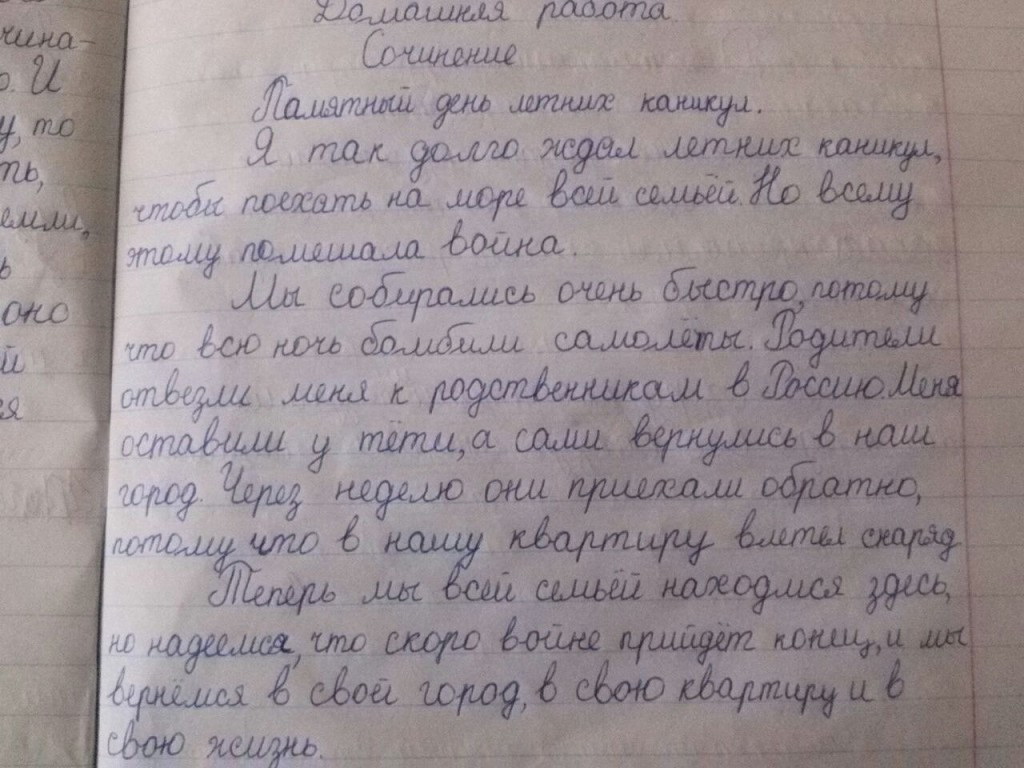 чина-
о. И
у, то
ть,
емли,
ь
оно
й
ся
Домашняя работа
Сочинение
Памятный день летних каникул.
Я так долго ждал летних каникул,
чтобы поехать на море всей семьёй. Но всему
этому помешала война.
Мы собирались очень быстро, потому
что всю ночь бомбили самолёты. Родители
отвезли меня к родственникам в Россию. Меня
оставили у тёти, а сами вернулись в наш
город. Через неделю они приехали обратно,
потому что в нашу квартиру влетел снаряд
Теперь мы всей семьёй находмся здесь,
но надеемся, что скоро войне прийдёт конец, и мы
вернёмся в свой город, в свою квартиру и в
свою жизнь.